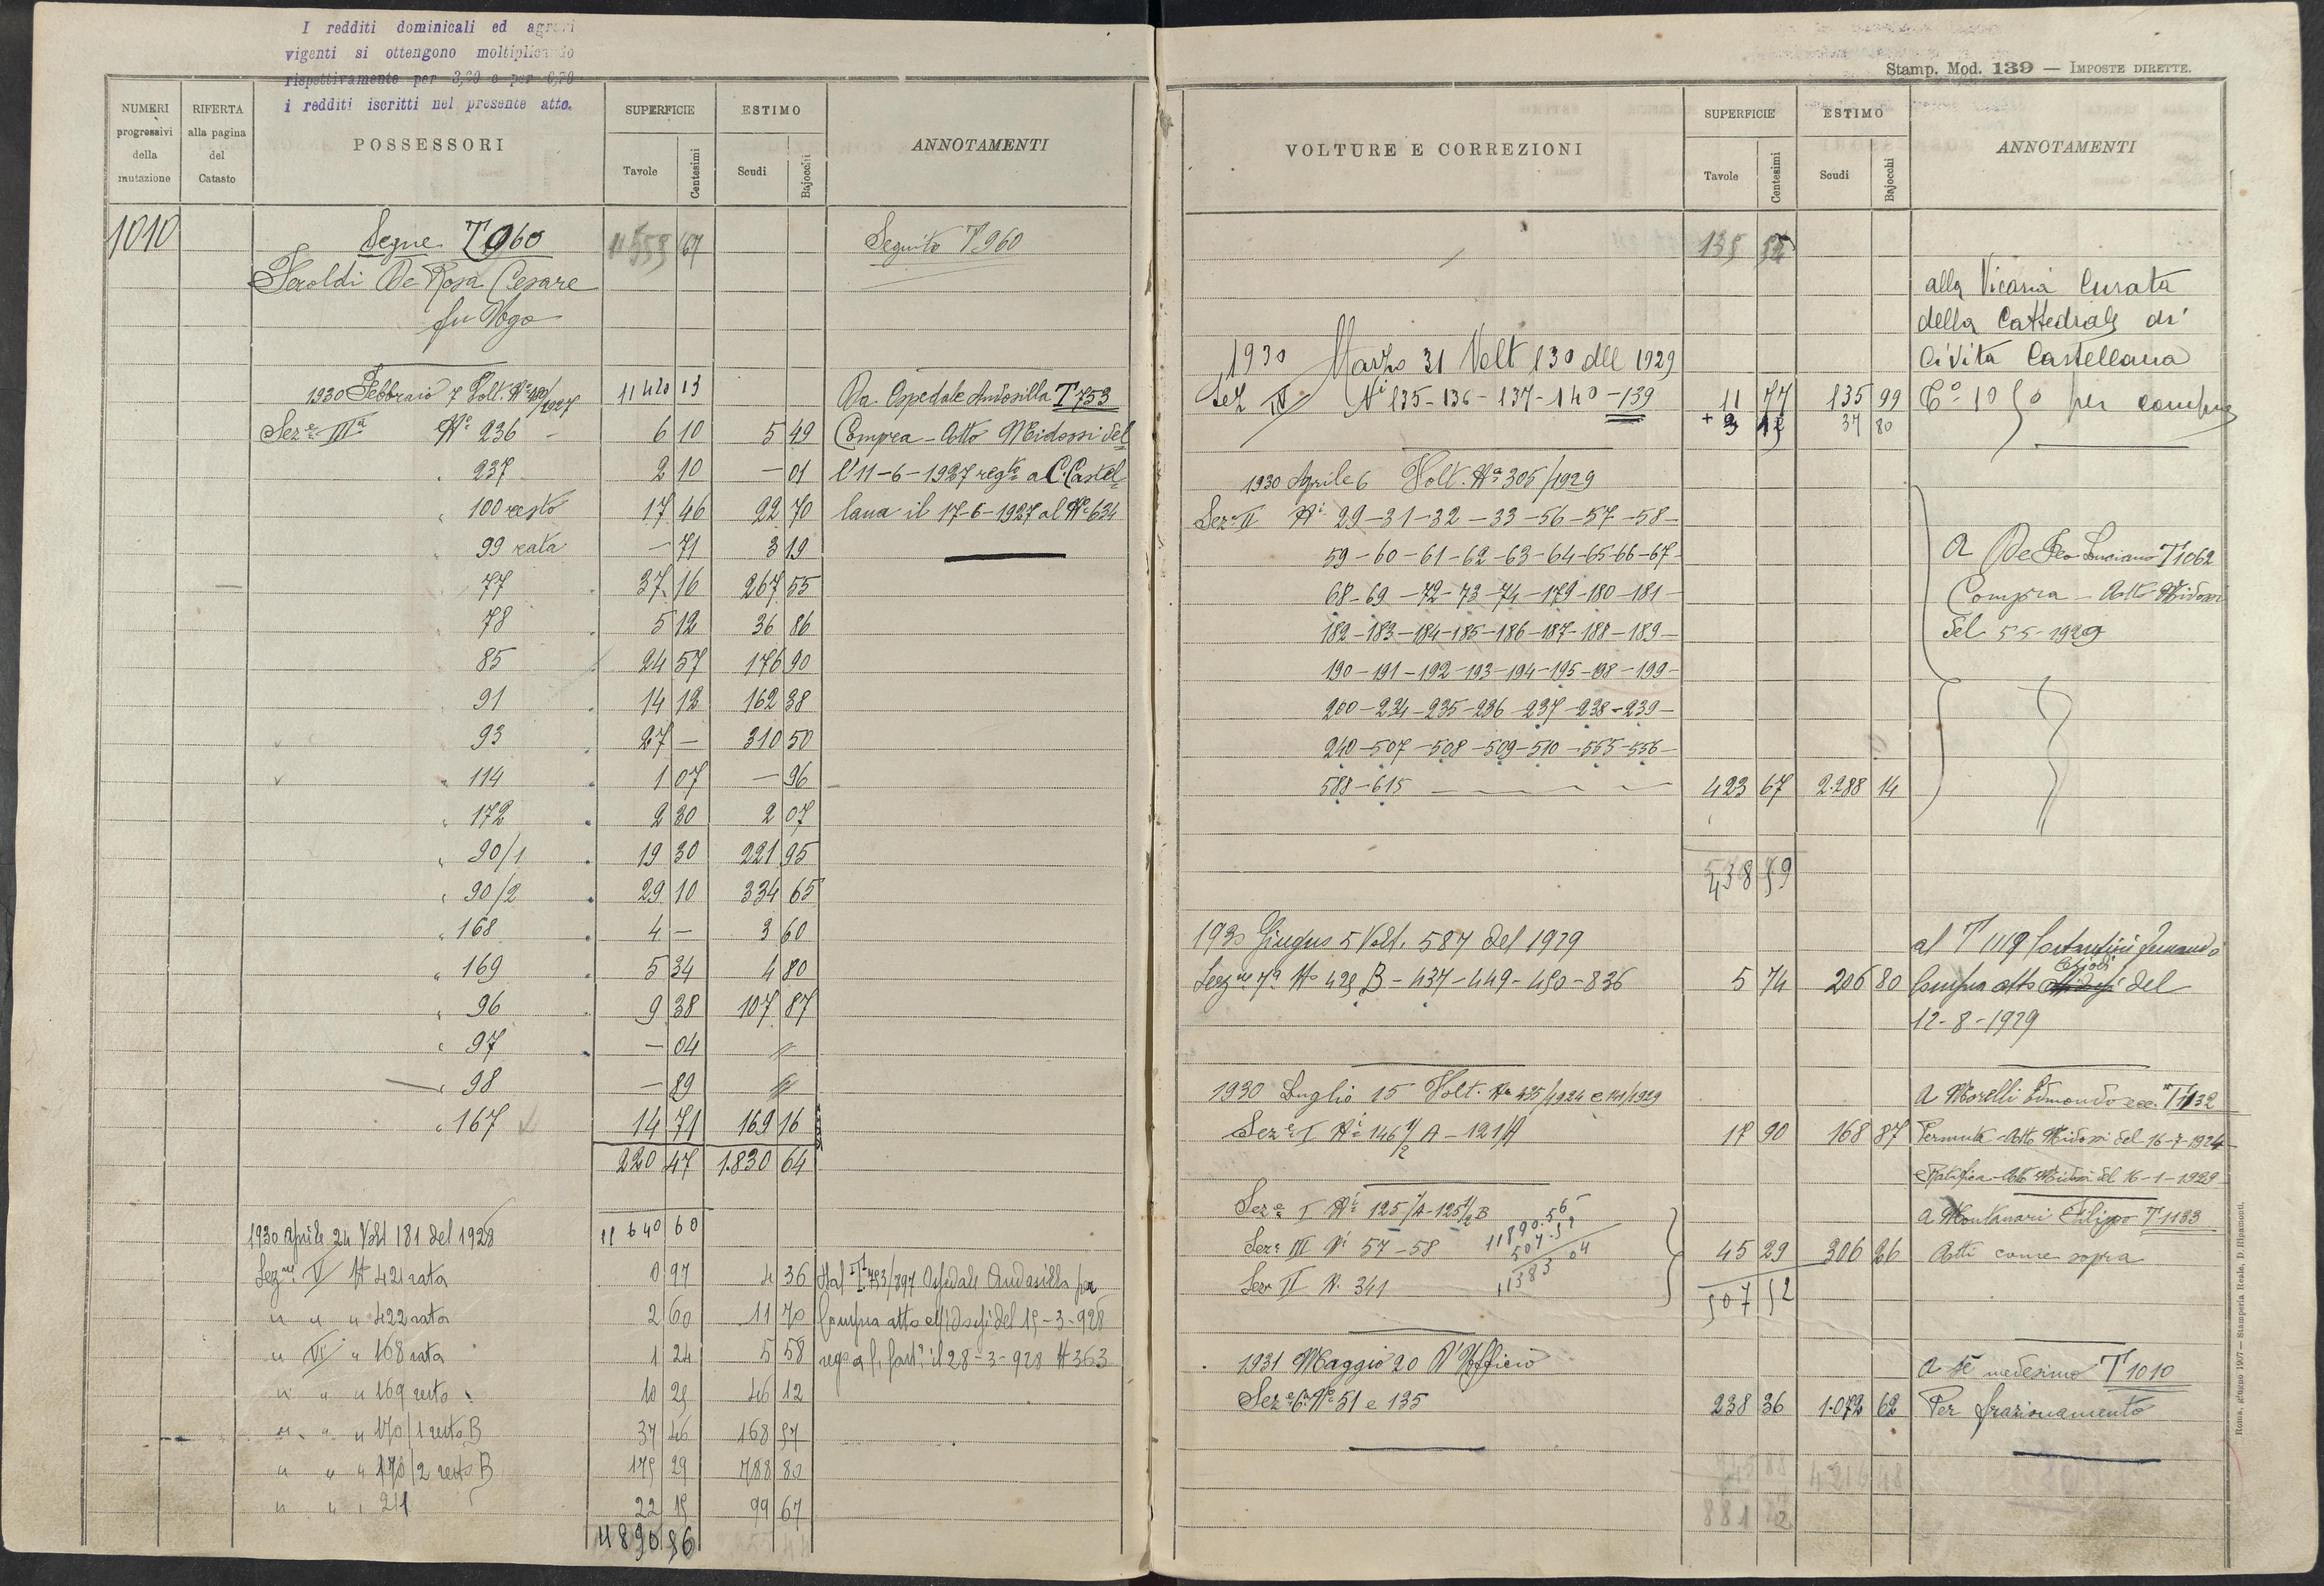 I redditi dominicali ed agrari
vigenti si ottengono moltiplicando
rispettivamente per 3,20 e per 0,70
i redditi iscritti nel presente atto.
NUMERI progressivi della mutazione
RIFERTA alla pagina del Catasto
POSSESSORI
SUPERFICIE
Tavole Centesimi
ESTIMO
Scudi Bajocchi
ANNOTAMENTI
1010 Segue T 960 11559 67 Seguito T 960
Feroldi De Rosa Cesare
fu Ugo
1930 Febbraio 7 Volt. N° /1927 11420 13 Da Ospedale Andosilla T 753
Sez.e IIIa N° 236 - 6 10 5 49 Compra - Atto Midossi del-
" 237 2 10 - 01 l'11-6-1927 reg.to a C. Castel-
" 100 resto 17 46 22 70 lana il 17-6-1927 al N° 634
99 rata - 71 3 19
" 77 37 16 267 55
" 78 5 12 36 86
85 24 57 176 90
91 14 12 162 38
93 27 - 310 50
" 114 1 07 - 96
" 172 2 30 2 07
" 90/1 19 30 221 95
" 90/2 29 10 334 65
" 168 4 - 3 60
" 169 5 34 4 80
" 96 9 38 107 87
" 97 - 04 "
" 98 - 89 "
" 167 14 71 169 16
220 47 1.830 64
1930 aprile 24 Volt 181 del 1928 11640 60
Sez.ne V N 421 rata 0 97 4 36 Dal T. 753/897 Ospedale Andosilla per
" " " 422 rata 2 60 11 70 Compra atto Midossi del 15-3-928
" VI " 168 rata 1 24 5 58 reg° a C. Cast. il 28-3-928 N 363
" " " 169 resto 10 25 46 12
" " " 170/1 resto B 37 46 168 57
" " " 170/2 resto B 175 29 788 80
" " " 211 22 15 99 67
11890 56
Stamp. Mod. 139 — IMPOSTE DIRETTE.
VOLTURE E CORREZIONI
SUPERFICIE
Tavole Centesimi
ESTIMO
Scudi Bajocchi
ANNOTAMENTI
135 52
alla Vicaria Curata
della Cattedrale di
Civita Castellana
1930 Marzo 31 Volt 130 del 1929
Sez IV Ni 135-136-137-140-139 11 77 135 99 C° 1050 per compra
+ 3 12 37 80
1930 Aprile 6 Volt. N° 305/1929
Sez.e II Ni 29-31-32-33-56-57-58-
59-60-61-62-63-64-65-66-67- A De Feo Luciano T 1062
68-69-72-73-74-179-180-181- Compra - Atto Midossi
182-183-184-185-186-187-188-189- del 5-5-1929
190-191-192-193-194-195-198-199-
200-234-235-236-237-238-239-
240-507-508-509-510-555-556-
588-615 423 67 2.288 14
438 59
1930 Giugno 5 Volt. 587 del 1929 al T 1119 Costantini Fernando
Sez.ne 7a N° 429 B-437-449-450-836 5 74 206 80 Compra atto del
12-8-1929
1930 Luglio 15 Volt. N° 435/1924 e 141/1929 A Morelli Edmondo ecc. T 1132
Sez.e I Ni 146 1/2 A - 121/A 17 90 168 87 Permuta Atto Midossi del 16-7-1924
e Ratifica Atto Midossi del 16-1-1929
Sez.e I Ni 125 1/A - 125 1/2 B A Montanari Filippo T 1133
11890.56
507.52
11383 04
Sez.e III Ni 57-58 45 29 306 26 Atti come sopra
Sez II N. 341
507 52
1931 Maggio 20 D'Ufficio A sé medesimo T 1010
Sez.e 6a Ni 51 e 135 238 36 1.072 62 Per frazionamento
745 88 4216 48
881
Roma, giugno 1907 — Stamperia Reale, D. Ripamonti.